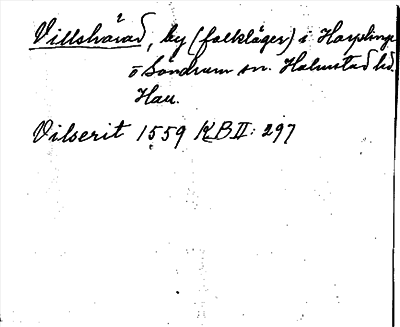 Villshärad, by (folkläger) i Harplinge
o Söndrum sn. Halmstad hd.
Hall.
Vilserit 1559 KB II: 297